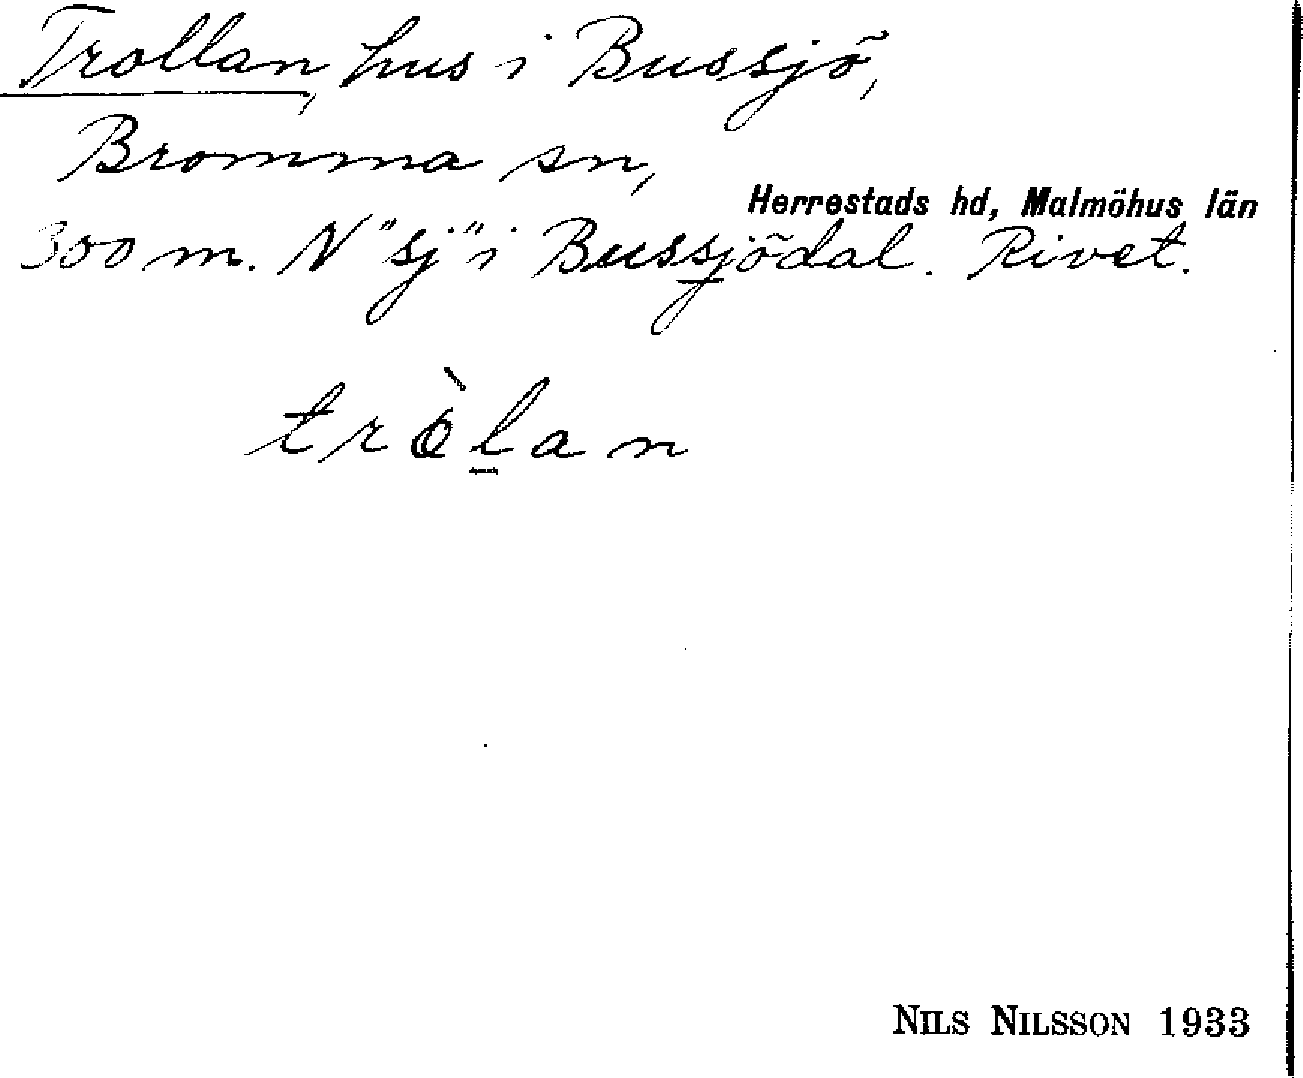 Trollan, hus i Bussjö,
Bromma sn,
Herrestads hd, Malmöhus län
300 m. N "sj" i Bussjödal. Rivet.
tròlan
NILS NILSSON 1933